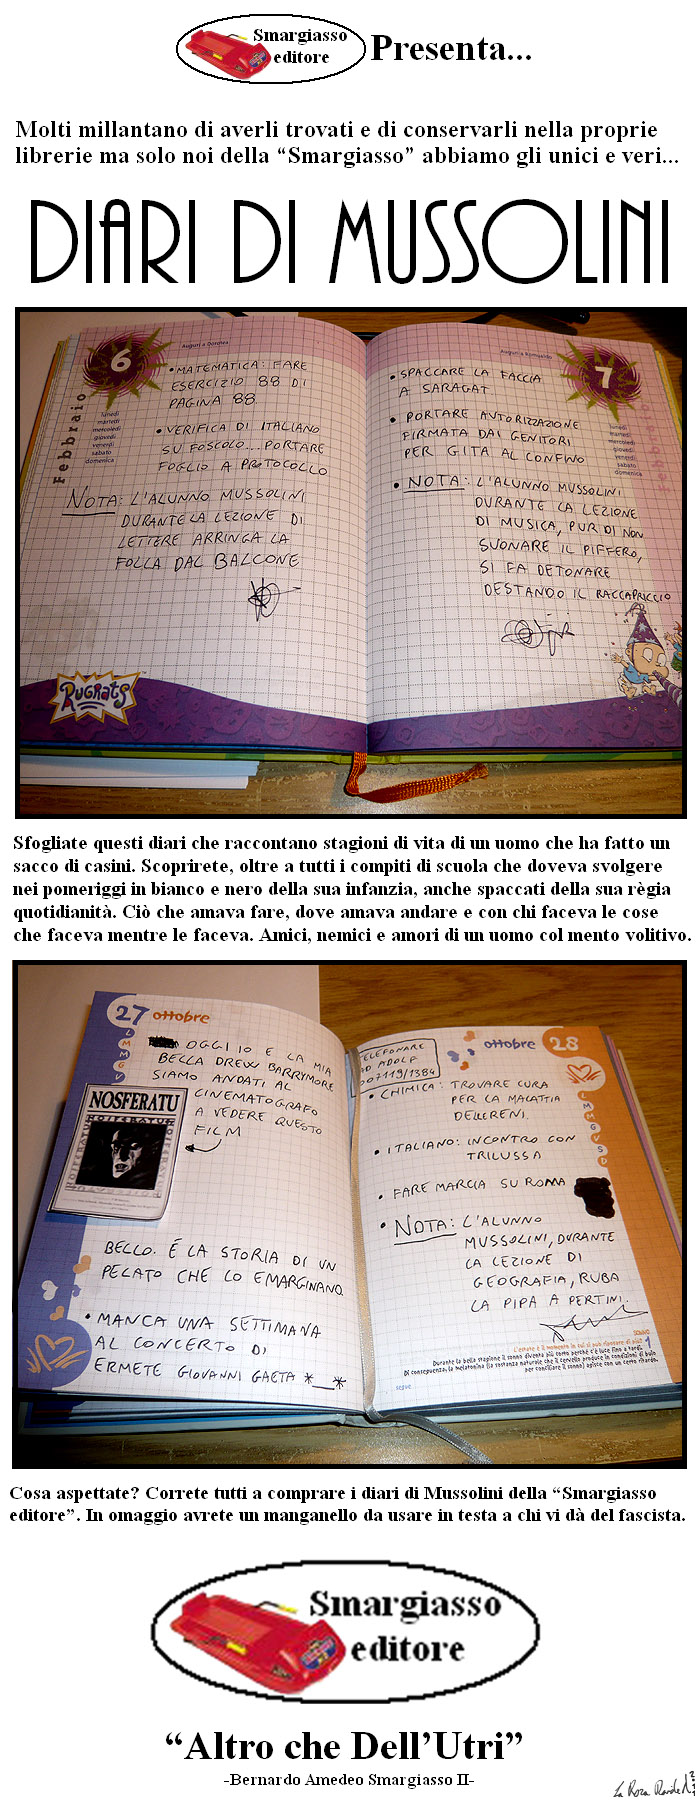 Smargiasso
editore
Presenta...
Molti millantano di averli trovati e di conservarli nella proprie
librerie ma solo noi della “Smargiasso” abbiamo gli unici e veri...
DIARI DI MUSSOLINI
6
Febbraio
Auguri a Dorotea
lunedì
martedì
mercoledì
giovedì
venerdì
sabato
domenica
• MATEMATICA: FARE
ESERCIZIO 88 DI
PAGINA 88
• VERIFICA DI ITALIANO
SU FOSCOLO... PORTARE
FOGLIO A PROTOCOLLO
NOTA: L'ALUNNO MUSSOLINI
DURANTE LA LEZIONE DI
LETTERE ARRINGA LA
FOLLA DAL BALCONE
RUGRATS
Auguri a Romualdo
7
Febbraio
lunedì
martedì
mercoledì
giovedì
venerdì
sabato
domenica
• SPACCARE LA FACCIA
A SARAGAT
• PORTARE AUTORIZZAZIONE
FIRMATA DAI GENITORI
PER GITA AL CONFINO
• NOTA: L'ALUNNO MUSSOLINI
DURANTE LA LEZIONE
DI MUSICA, PUR DI NON
SUONARE IL PIFFERO,
SI FA DETONARE
DESTANDO IL RACCAPRICCIO
Sfogliate questi diari che raccontano stagioni di vita di un uomo che ha fatto un
sacco di casini. Scoprirete, oltre a tutti i compiti di scuola che doveva svolgere
nei pomeriggi in bianco e nero della sua infanzia, anche spaccati della sua règia
quotidianità. Ciò che amava fare, dove amava andare e con chi faceva le cose
che faceva mentre le faceva. Amici, nemici e amori di un uomo col mento volitivo.
27 ottobre
L
M
M
G
V
OGGI IO E LA MIA
BELLA DREW BARRYMORE
SIAMO ANDATI AL
CINEMATOGRAFO
A VEDERE QUESTO
FILM
NOSFERATU
BELLO. É LA STORIA DI UN
PELATO CHE LO EMARGINANO
• MANCA UNA SETTIMANA
AL CONCERTO DI
ERMETE GIOVANNI GAETA *__*
ottobre 28
L
M
M
G
V
S
D
TELEFONARE
AD ADOLF
007119/1384
• CHIMICA: TROVARE CURA
PER LA MALATTIA
DELLE RENI.
• ITALIANO: INCONTRO CON
TRILUSSA
• FARE MARCIA SU ROMA
• NOTA: L'ALUNNO
MUSSOLINI, DURANTE
LA LEZIONE DI
GEOGRAFIA, RUBA
LA PIPA A PERTINI.
SONNO
L'estate è il momento in cui si può riposare di più?
Durante la bella stagione il sonno diventa più corto perché c'è luce fino a tardi.
Di conseguenza, la melatonina (la sostanza naturale che il cervello produce in condizioni di buio
per conciliare il sonno) agisce con un certo ritardo.
segue
Cosa aspettate? Correte tutti a comprare i diari di Mussolini della “Smargiasso
editore”. In omaggio avrete un manganello da usare in testa a chi vi dà del fascista.
Smargiasso
editore
“Altro che Dell’Utri”
-Bernardo Amedeo Smargiasso II-
La Roza